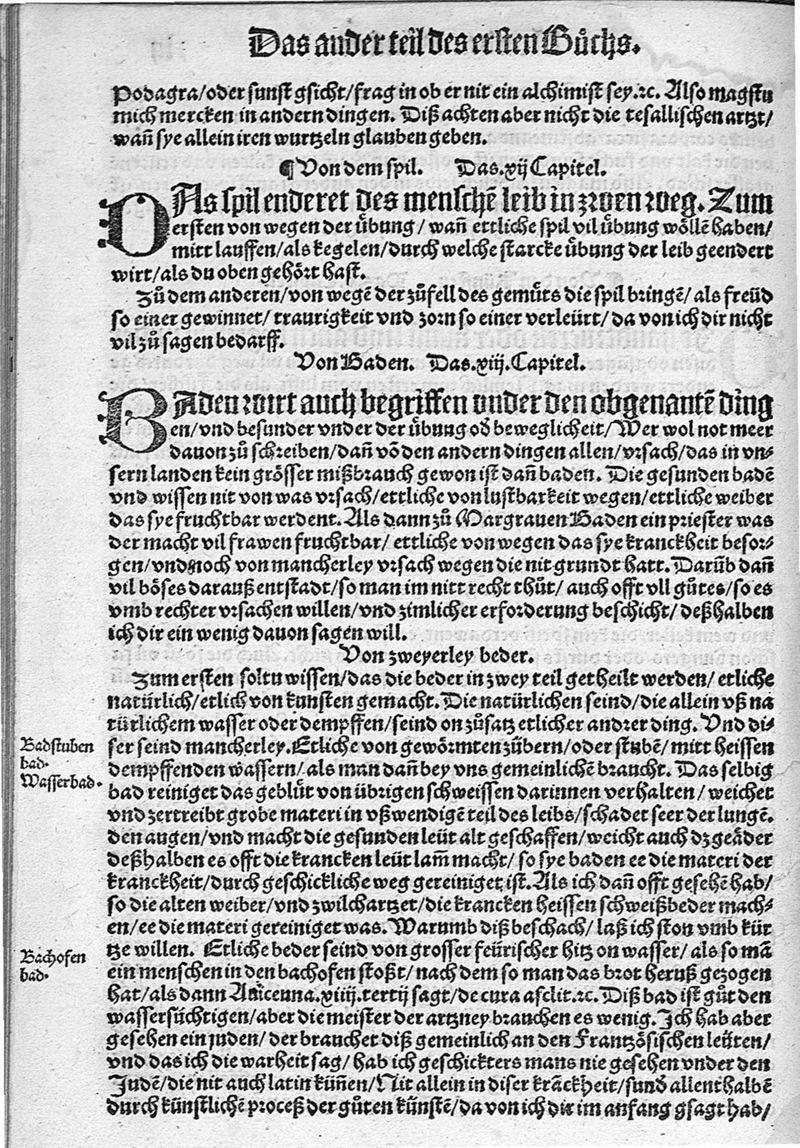 Das ander teil des ersten Bůchs.
Podagra/oder sunst gsicht/frag in ob er nit ein alchimist sey.ꝛc. Also magstu
mich mercken in andern dingen. Diß achten aber nicht die tesallischen artzt/
wañ sye allein iren wurtzeln glauben geben.
¶Von dem spil. Das.xij Capitel.
DAs spil enderet des menschẽ leib in zwen weg. Zum
ersten von wegen der übung/ wañ ettliche spil vil übung wöllẽ haben/
mitt lauffen/als kegelen/durch welche starcke übung der leib geendert
wirt/als du oben gehört hast.
Zů dem anderen/von wegẽ der zůfell des gemüts die spil bringẽ/als freüd
so einer gewinnet/ traurigkeit vnd zorn so einer verleürt/da von ich dir nicht
vil zů sagen bedarff.
Von Baden. Das.xiij.Capitel.
BAden wirt auch begriffen vnder den obgenantẽ ding
en/vnd besunder vnder der übung od̕ beweglicheit/Wer wol not meer
dauon zů schreiben/dañ võ den andern dingen allen/vrsach/das in vn-
sern landen kein grösser mißbrauch gewon ist dañ baden. Die gesunden badẽ
vnd wissen nit von was vrsach/ettliche von lustbarkeit wegen/ettliche weiber
das sye fruchtbar werdent. Als dann zů Margrauen Baden ein priester was
der macht vil frawen fruchtbar/ ettliche von wegen das sye kranckheit besor-
gen/vnd noch von mancherley vrsach wegen die nit grundt hatt. Darüb dañ
vil böses darauß entstadt/so man im nitt recht thůt/ auch offt vll gůtes/so es
vmb rechter vrsachen willen/vnd zimlicher erforderung beschicht/deßhalben
ich dir ein wenig dauon sagen will.
Von zweyerley beder.
Zum ersten soltu wissen/das die beder in zwey teil getheilt werden/etliche
natürlich/etlich von kunsten gemacht. Die natürlichen seind/die allein vß na
türlichem wasser oder dempffen/seind on zůsatz etlicher andrer ding. Vnd di-
Badstuben
bad.
Wasserbad.
ser seind mancherley.Etliche von gewörmten zübern/oder stubẽ/ mitt heissen
dempffenden wassern/ als man dañ bey vns gemeinlichẽ braucht. Das selbig
bad reiniget das geblüt von übrigen schweissen darinnen verhalten/ weichet
vnd zertreibt grobe materi in vßwendigẽ teil des leibs/schadet seer der lungẽ.
den augen/vnd macht die gesunden leüt alt geschaffen/weicht auch dz geäder
deßhalben es offt die krancken leüt lam̃ macht/ so sye baden ee die materi der
kranckheit/durch geschickliche weg gereiniget ist. Als ich dañ offt gesehẽ hab/
so die alten weiber/vnd zwilchartzet/die krancken heissen schweißbeder mach-
en/ee die materi gereiniget was. Warumb diß beschach/ laß ich ston vmb kür
Bachofen
bad.
tze willen. Etliche beder seind von grosser feürischer hitz on wasser/ als so mã
ein menschen in den bachofen stoßt/ nach dem so man das brot heruß gezogen
hat/als dann Auicenna.xiiij.tertij sagt/de cura asclit.ꝛc. Diß bad ist gůt den
wassersüchtigen/aber die meister der artzney brauchen es wenig. Ich hab aber
gesehen ein juden/ der brauchet diß gemeinlich an den Frantzösischen leüten/
vnd das ich die warheit sag/ hab ich geschickters mans nie gesehen vnder den
Judẽ/die nit auch latin küñen/Nit allein in diser krãckheit/sund̕ allenthalbẽ
durch künstlichẽ proceß der gůten künstẽ/da von ich dir im anfang gsagt hab/